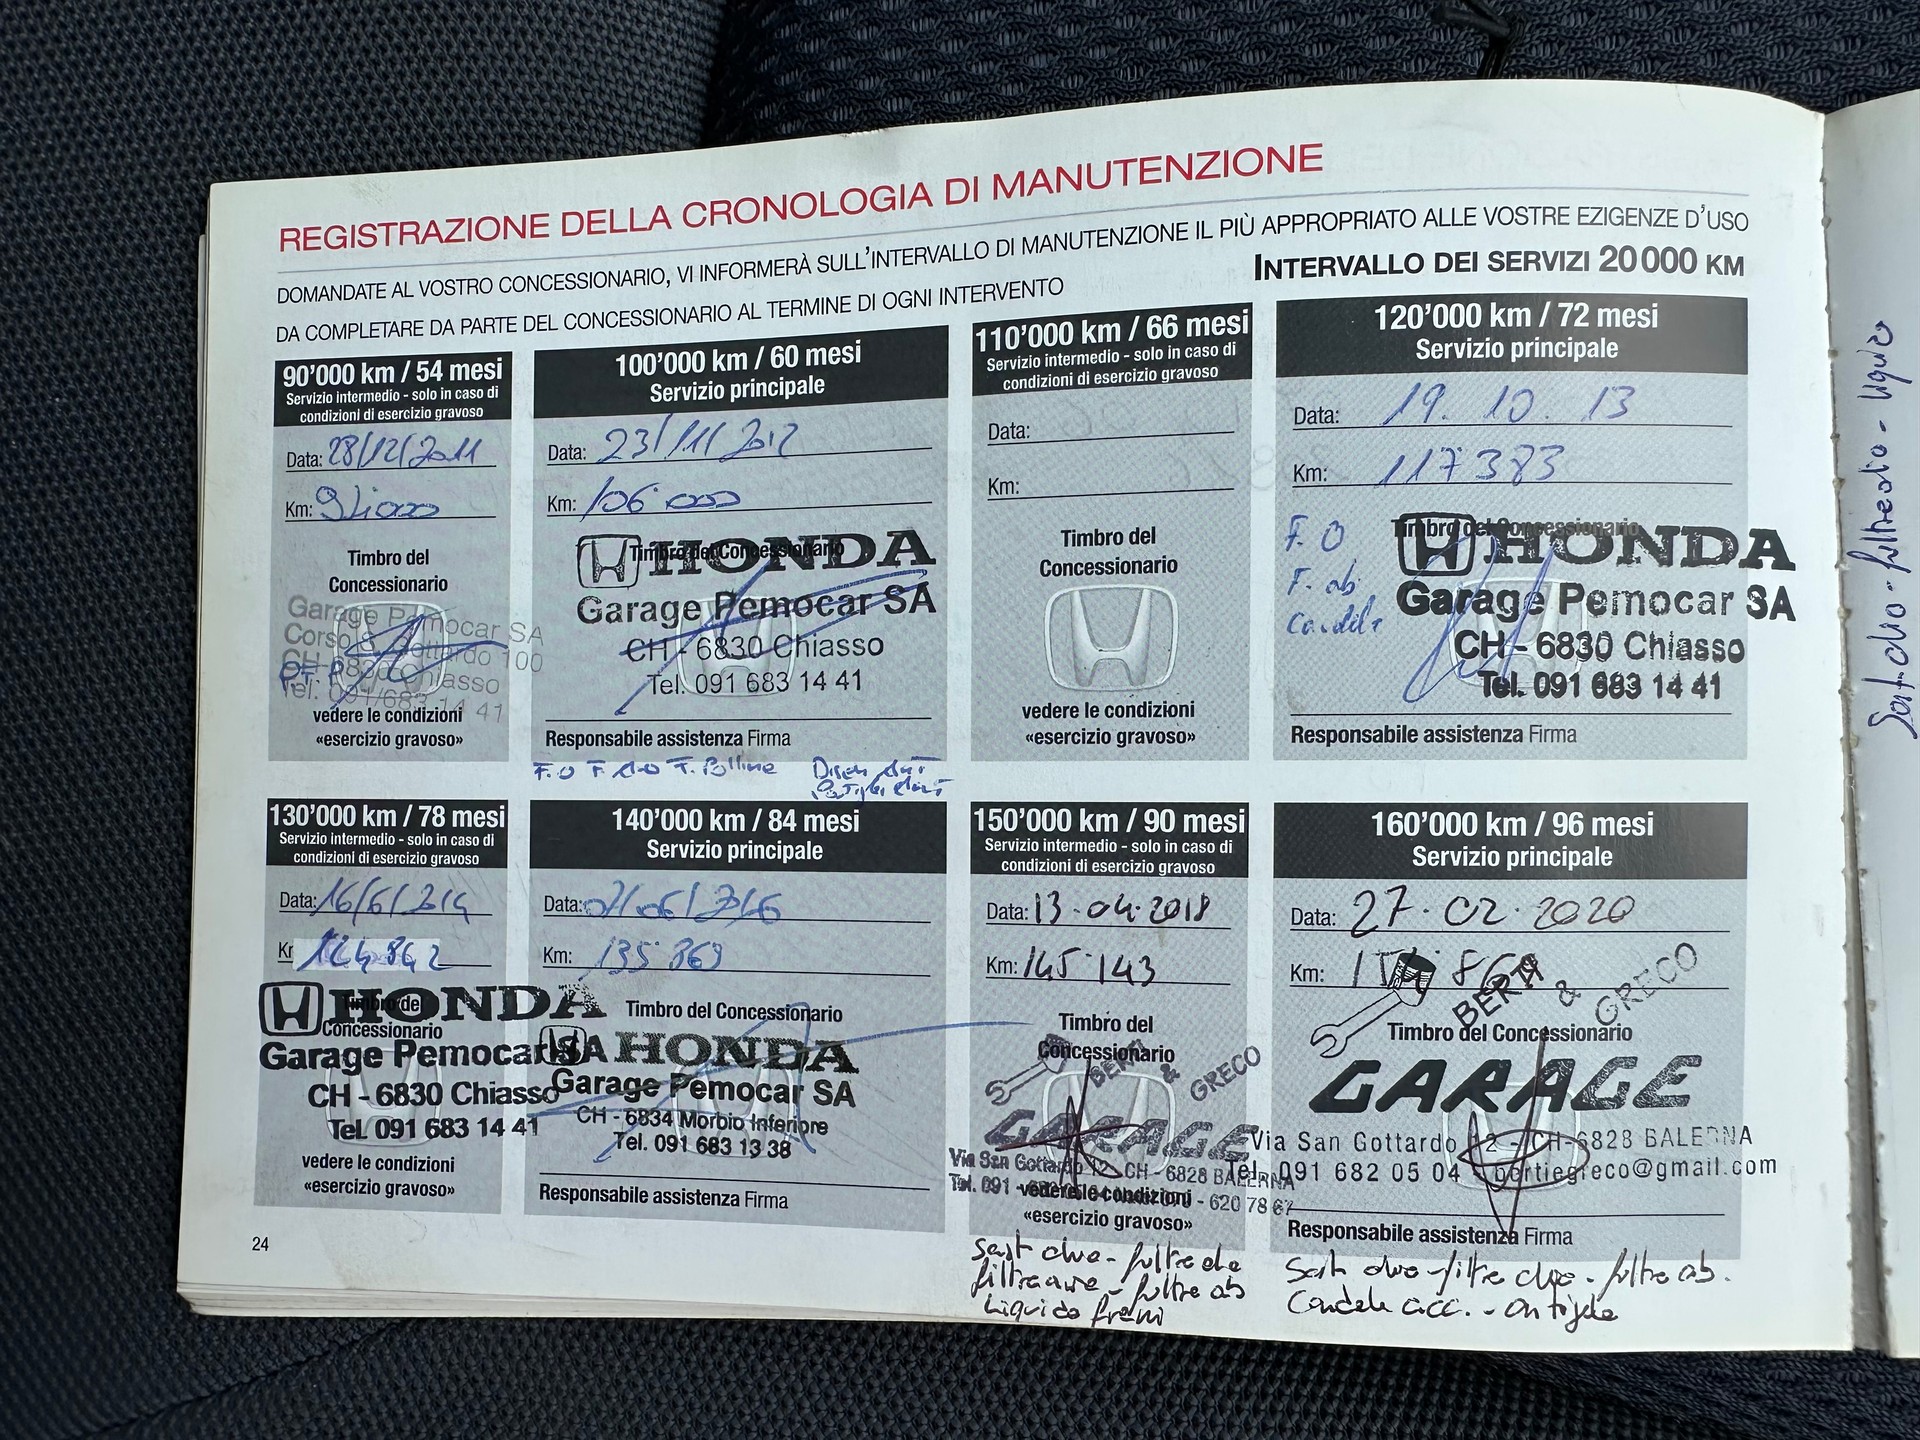 REGISTRAZIONE DELLA CRONOLOGIA DI MANUTENZIONE
DOMANDATE AL VOSTRO CONCESSIONARIO, VI INFORMERÀ SULL'INTERVALLO DI MANUTENZIONE IL PIÙ APPROPRIATO ALLE VOSTRE EZIGENZE D'USO
DA COMPLETARE DA PARTE DEL CONCESSIONARIO AL TERMINE DI OGNI INTERVENTO
INTERVALLO DEI SERVIZI 20000 KM
90'000 km / 54 mesi
Servizio intermedio - solo in caso di
condizioni di esercizio gravoso
Data: 28/12/2011
Km:
Timbro del
Concessionario
Garage Pemocar SA
Corso S. Gottardo 100
CH-6830 Chiasso
Tel. 091/683 14 41
vedere le condizioni
«esercizio gravoso»
100'000 km / 60 mesi
Servizio principale
Data: 23/11/2012
Km: 106 000
Timbro del Concessionario
HONDA
Garage Pemocar SA
CH - 6830 Chiasso
Tel. 091 683 14 41
Responsabile assistenza Firma
F.O F. F. Polline
110'000 km / 66 mesi
Servizio intermedio - solo in caso di
condizioni di esercizio gravoso
Data:
Km:
Timbro del
Concessionario
vedere le condizioni
«esercizio gravoso»
120'000 km / 72 mesi
Servizio principale
Data: 19. 10. 13
Km: 117383
F. O
F. ab
Candele
Timbro del Concessionario
HONDA
Garage Pemocar SA
CH - 6830 Chiasso
Tel. 091 683 14 41
Responsabile assistenza Firma
130'000 km / 78 mesi
Servizio intermedio - solo in caso di
condizioni di esercizio gravoso
Data: 16/6/2014
124 842
Timbro del
Concessionario
HONDA
Garage Pemocar SA
CH - 6830 Chiasso
Tel. 091 683 14 41
vedere le condizioni
«esercizio gravoso»
140'000 km / 84 mesi
Servizio principale
Data: 01/06/2016
Km: 135 869
Timbro del Concessionario
HONDA
Garage Pemocar SA
CH - 6834 Morbio Inferiore
Tel. 091 683 13 38
Responsabile assistenza Firma
150'000 km / 90 mesi
Servizio intermedio - solo in caso di
condizioni di esercizio gravoso
Data: 13-04-2018
Km: 145'143
Timbro del
Concessionario
BERTI & GRECO
GARAGE
Via San Gottardo 12 - CH - 6828 BALERNA
Tel. 091 - 620 78 67
vedere le condizioni
«esercizio gravoso»
Sost olio - filtro olio
filtro aria - filtro ab
Liquido freni
160'000 km / 96 mesi
Servizio principale
Data: 27.02.2020
Km:
BERTI & GRECO
Timbro del Concessionario
GARAGE
Via San Gottardo 12 - CH-6828 BALERNA
Tel. 091 682 05 04 - bertiegreco@gmail.com
Responsabile assistenza Firma
Sost olio - filtro olio - filtro ab.
Candele acc. - antigelo
24
Sost. olio - filtro olio - liquido